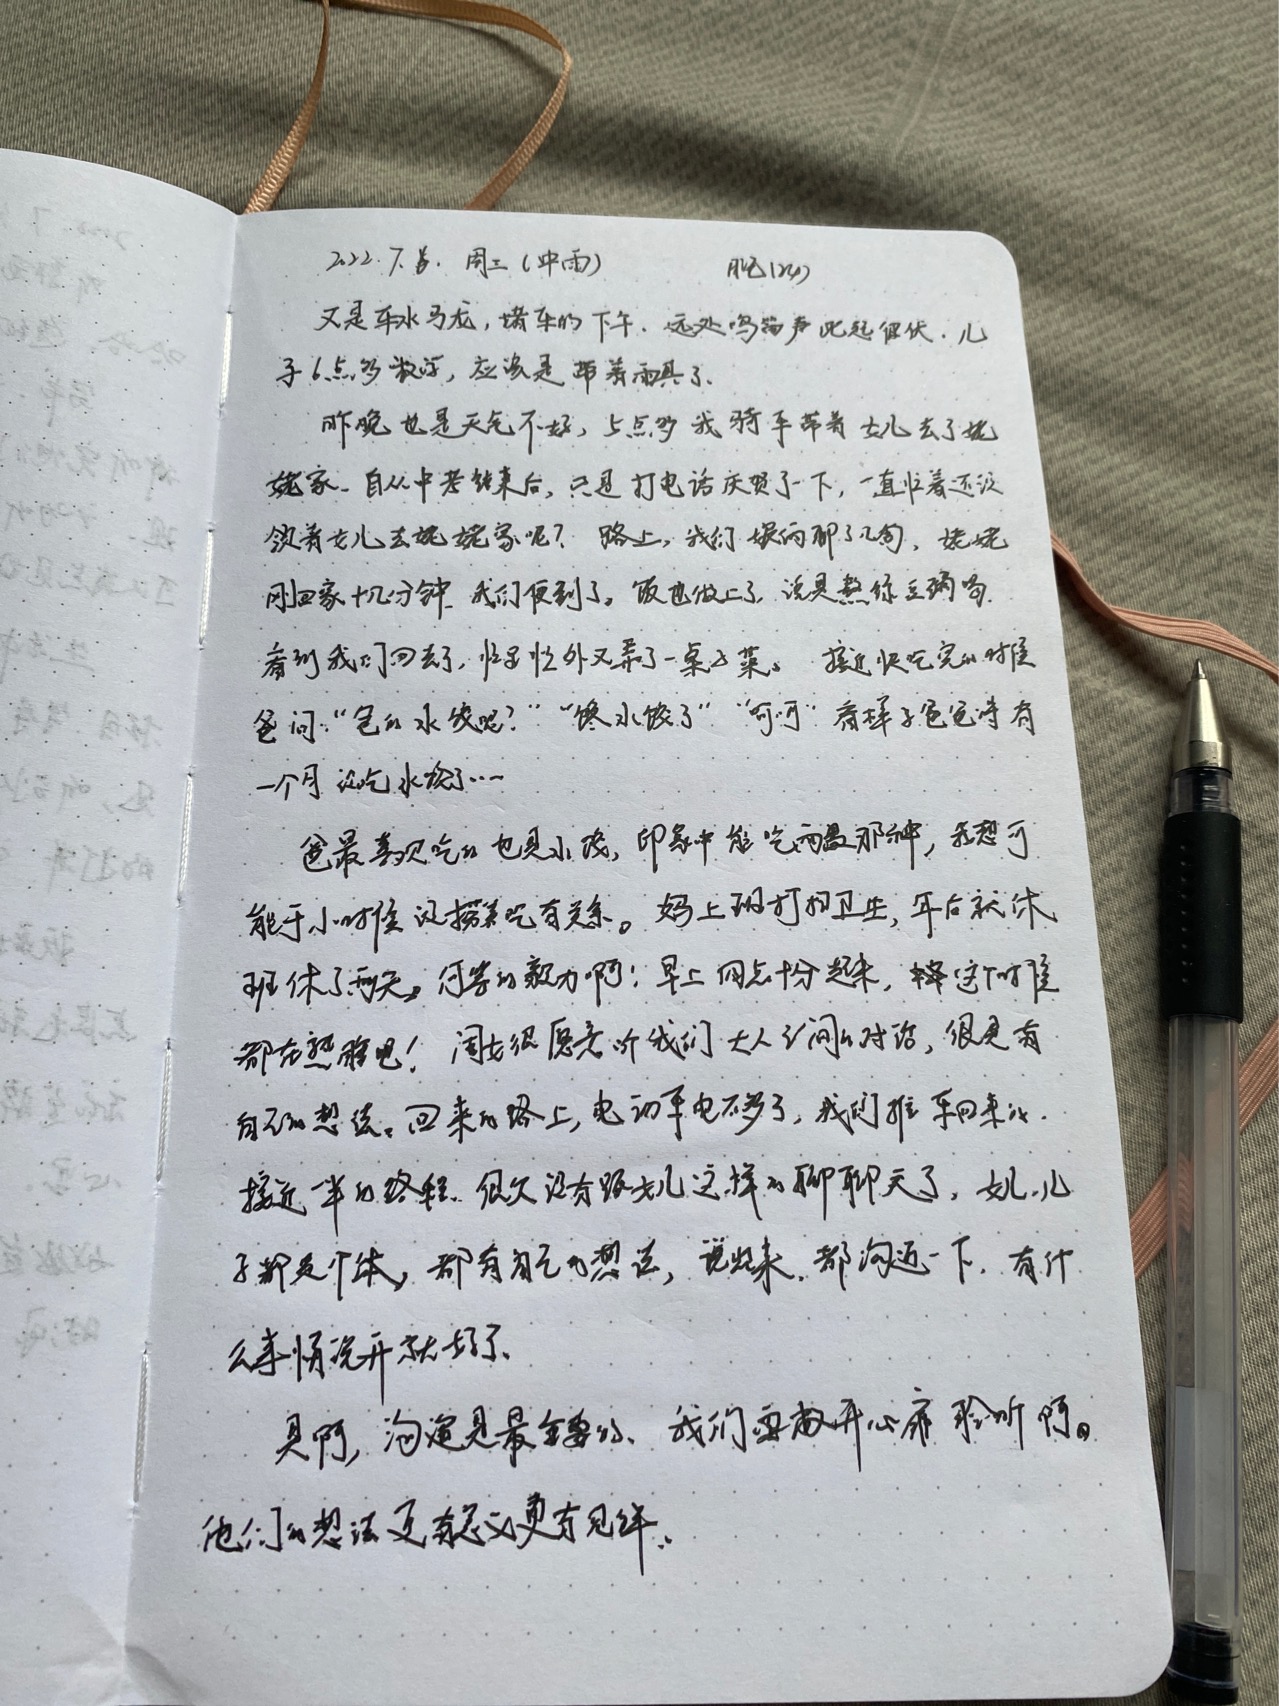 2022.7.6. 周三（中雨）
又是车水马龙，堵车的下午. 远处鸣笛声此起彼伏. 儿
子6点多放学，应该是带着雨具了.
昨晚也是天气不好，5点多我骑车带着女儿去了姥
姥家. 自从中考结束后，只是打电话庆贺了一下，一直忙着还没
领着女儿去姥姥家呢？路上，我们娘俩聊了几句，姥姥
刚回家十几分钟 我们便到了。饭也做上了 说是熬绿豆粥
看到我们回去了，忙里忙外又弄了一桌子菜。接近快吃完的时候
爸问：“包的水饺呢？”“馋水饺了”“呵呵”看样子爸爸得有
一个月没吃水饺了……
爸最喜欢吃的也是水饺，印象中能吃两盘那种，我想可
能于小时候没捞着吃有关系。妈上班打扫卫生，年后就休
班休了两天。何等的毅力啊！早上四点十分起来，这个时候
都在熟睡吧！闺女很愿意听我们大人之间的对话，很是有
自己的想法。回来的路上，电动车电不多了，我们推车回来的.
接近一半的路程. 很久没有跟女儿这样的聊聊天了，女儿.儿
子都是个体，都有自己的想法，说起来. 都沟通一下. 有什
么事情说开就好了.
是啊，沟通是最重要的、我们要敞开心扉聆听啊。
他们的想法更有意义更有见解.